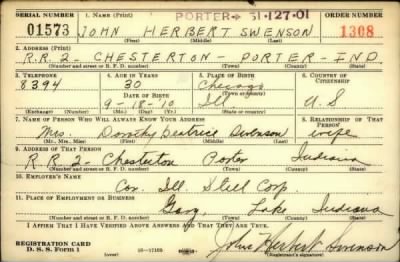 PORTER- 31-127-01
SERIAL NUMBER 1. NAME (Print) ORDER NUMBER
01573 JOHN HERBERT SWENSON 1308
(First) (Middle) (Last)
2. ADDRESS (Print)
R.R. 2- CHESTERTON- PORTER- IND
(Number and street or R. F. D. number) (Town) (County) (State)
3. TELEPHONE 4. AGE IN YEARS 5. PLACE OF BIRTH 6. COUNTRY OF CITIZENSHIP
8394 30 Chicago
DATE OF BIRTH (Town or county)
9-18-10 Ill U.S
(Exchange) (Number) (Mo.) (Day) (Yr.) (State or country)
7. NAME OF PERSON WHO WILL ALWAYS KNOW YOUR ADDRESS 8. RELATIONSHIP OF THAT PERSON
Mrs. Dorothy Beatrice Swenson wife
(Mr., Mrs., Miss) (First) (Middle) (Last)
9. ADDRESS OF THAT PERSON
R R 2- Chesterton Porter Indiana
(Number and street or R. F. D. number) (Town) (County) (State)
10. EMPLOYER'S NAME
Ill. Steel Corp.
11. PLACE OF EMPLOYMENT OR BUSINESS
Gary, Lake Indiana
(Number and street or R. F. D. number) (Town) (County) (State)
I AFFIRM THAT I HAVE VERIFIED ABOVE ANSWERS AND THAT THEY ARE TRUE.
REGISTRATION CARD
D. S. S. Form 1 John Herbert Swenson
(Registrant's signature)